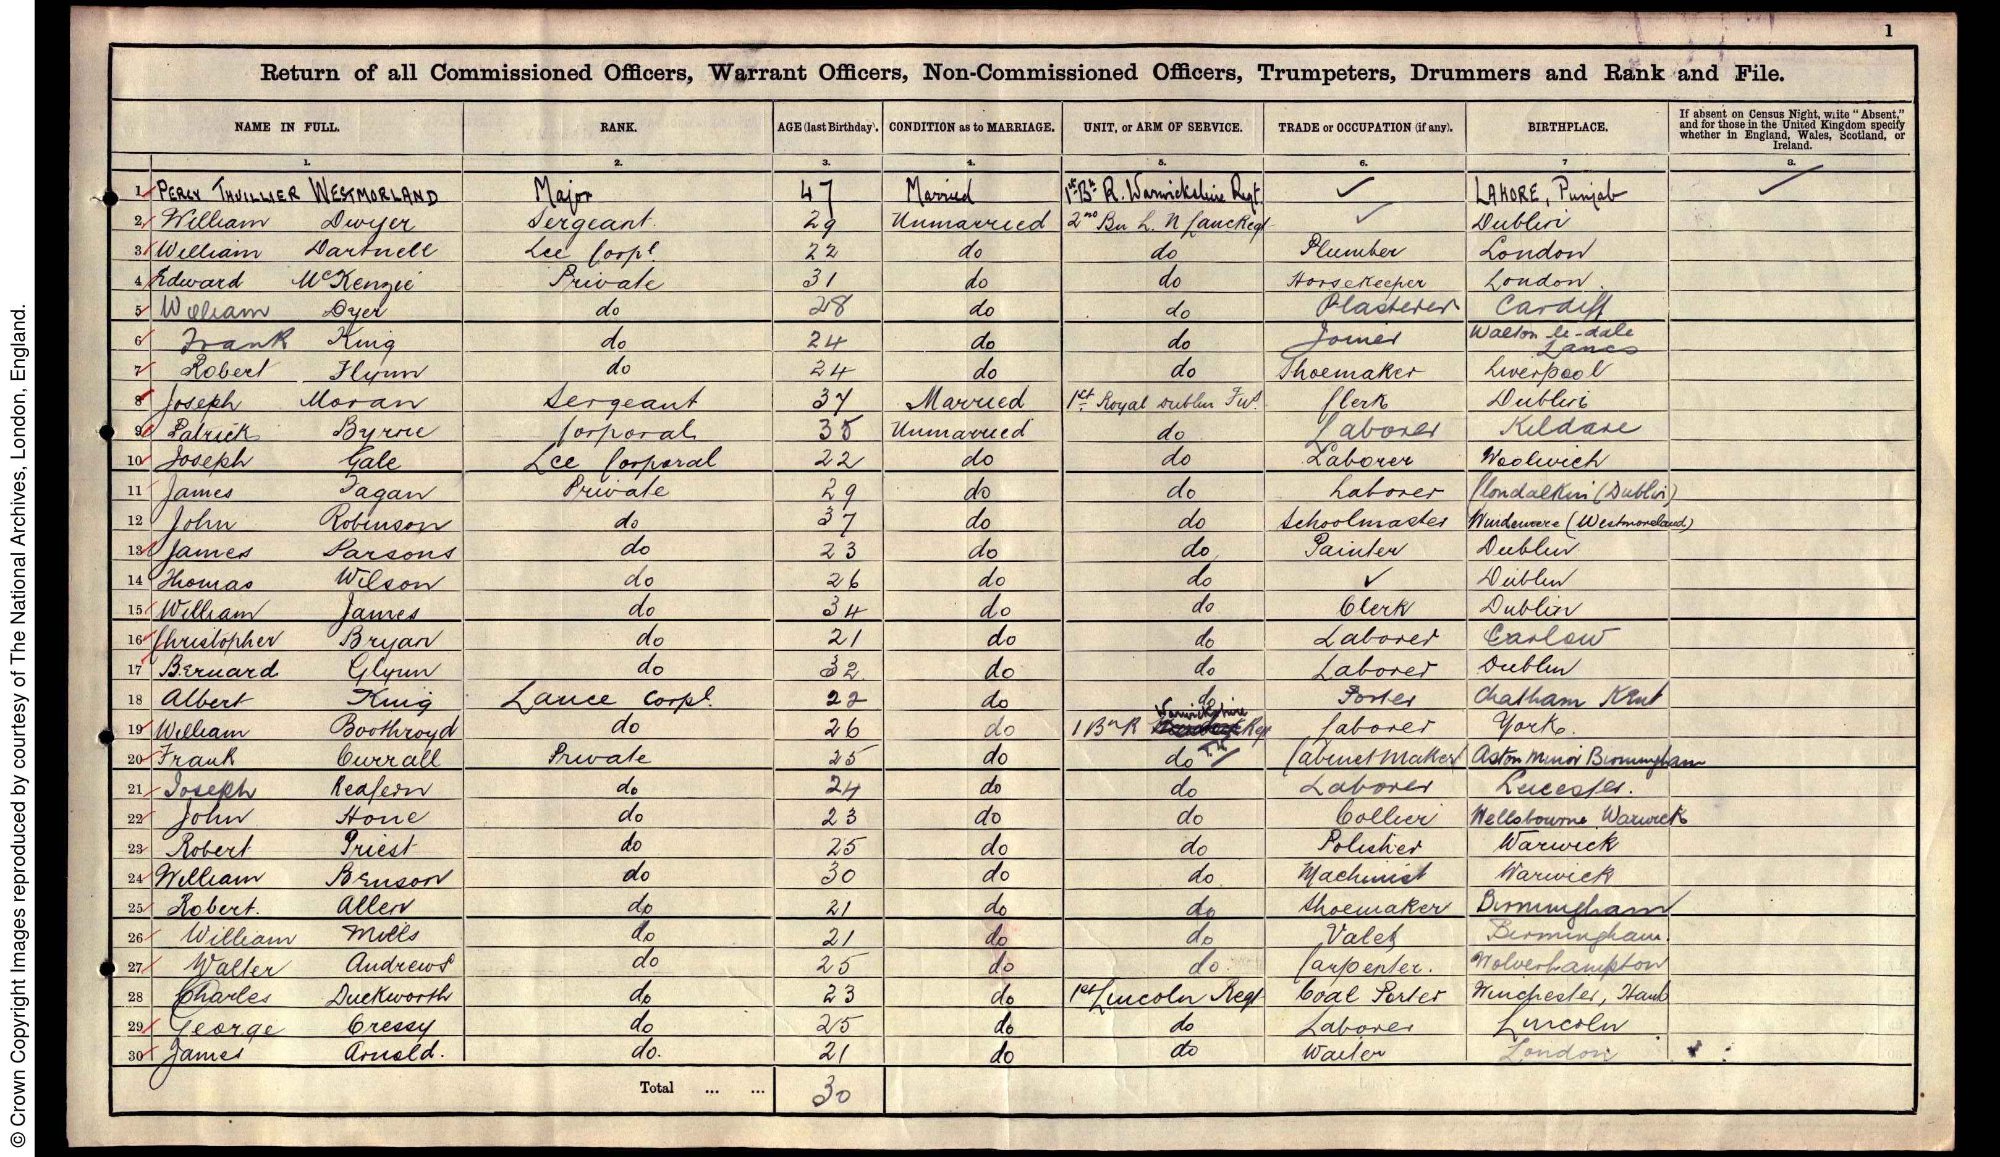 1
Return of all Commissioned Officers, Warrant Officers, Non-Commissioned Officers, Trumpeters, Drummers and Rank and File.
NAME IN FULL. RANK. AGE (last Birthday). CONDITION as to MARRIAGE. UNIT, or ARM OF SERVICE. TRADE or OCCUPATION (if any). BIRTHPLACE. If absent on Census Night, write "Absent," and for those in the United Kingdom specify whether in England, Wales, Scotland, or Ireland.
1. 2. 3. 4. 5. 6. 7 8.
1 PERCY THUILLIER WESTMORLAND Major 47 Married 1st Bn R. Warwickshire Regt. ✓ LAHORE, Punjab ✓
2 William Dwyer Sergeant. 29 Unmarried 2nd Bn L. N Lanc Regt ✓ Dublin
3 William Dartnell Lce Corpl 22 do do Plumber London
4 Edward McKenzie Private 31 do do Horsekeeper London
5 William Dyer do 28 do do Plasterer Cardiff
6 Frank King do 24 do do Joiner Walton le-dale Lancs
7 Robert Flynn do 24 do do Shoemaker Liverpool
8 Joseph Moran Sergeant 37 Married 1st Royal Dublin Fus. Clerk Dublin
9 Patrick Byrne Corporal 35 Unmarried do Laborer Kildare
10 Joseph Gale Lce Corporal 22 do do Laborer Woolwich
11 James Fagan Private 29 do do Laborer Clondalkin (Dublin)
12 John Robinson do 37 do do Schoolmaster Windemere (Westmoreland)
13 James Parsons do 23 do do Painter Dublin
14 Thomas Wilson do 26 do do ✓ Dublin
15 William James do 34 do do Clerk Dublin
16 Christopher Bryan do 21 do do Laborer Carlow
17 Bernard Glynn do 32 do do Laborer Dublin
18 Albert King Lance Corpl. 22 do do Porter Chatham Kent
19 William Boothroyd do 26 do 1 Bn R Warwickshire Regt Laborer York.
20 Frank Currall Private 25 do do Cabinet Maker Aston Minor Birmingham
21 Joseph Reafern do 24 do do Laborer Leicester.
22 John Hone do 23 do do Collier Wellsbourne Warwick
23 Robert Priest do 25 do do Polisher Warwick
24 William Benson do 30 do do Machinist Warwick
25 Robert. Allen do 21 do do Shoemaker Birmingham
26 William Mills do 21 do do Valet Birmingham.
27 Walter Andrews do 25 do do Carpenter. Wolverhampton
28 Charles Duckworth do 23 do 1st Lincoln Regt Coal Porter Winchester, Hants
29 George Cressy do 25 do do Laborer Lincoln
30 James Arnold. do. 21 do do Waiter London
Total ... ... 30
© Crown Copyright Images reproduced by courtesy of The National Archives, London, England.